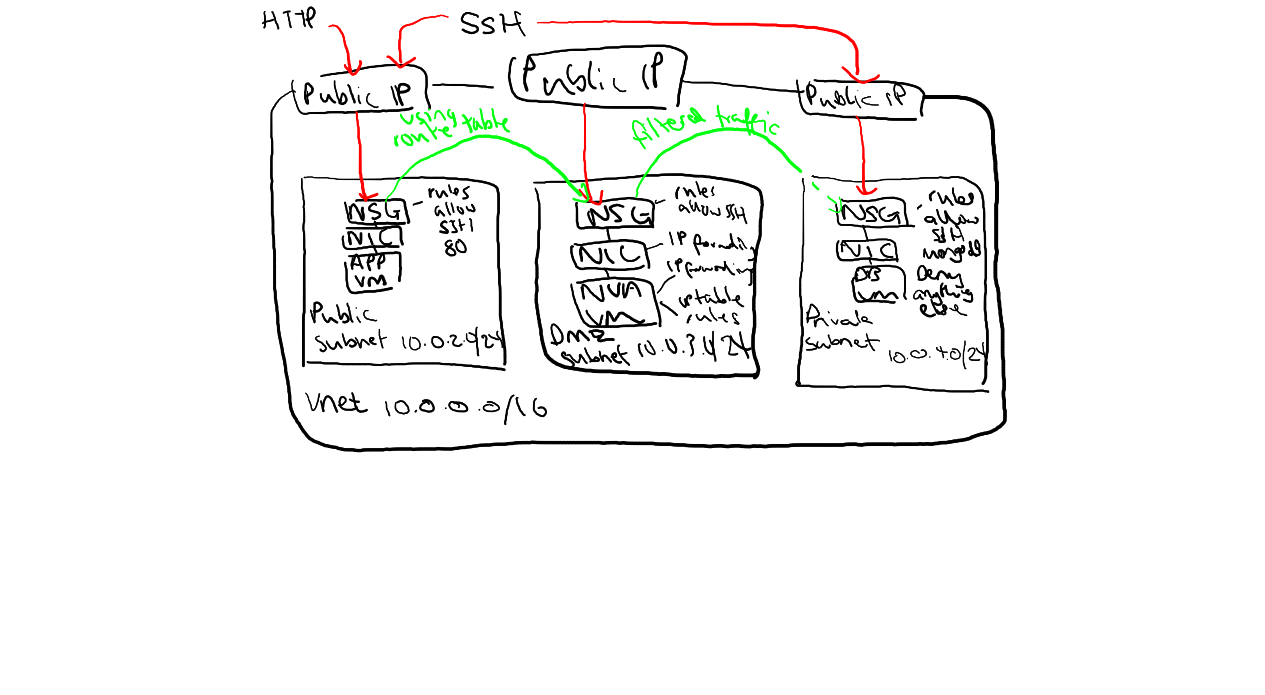 HTTP
SSH
Public IP
Public IP
Public IP
using
route table
filtered traffic
NSG
rules
allow
SSH
80
NIC
APP
VM
Public
subnet 10.0.2.0/24
NSG
rules
allow SSH
NIC
IP
IP
NVA
VM
iptable
rules
DMZ
subnet 10.0.3.0/24
NSG
rules
allow
SSH
NIC
DB
VM
Deny
anything
else
Private
subnet
10.0.4.0/24
Vnet 10.0.0.0/16